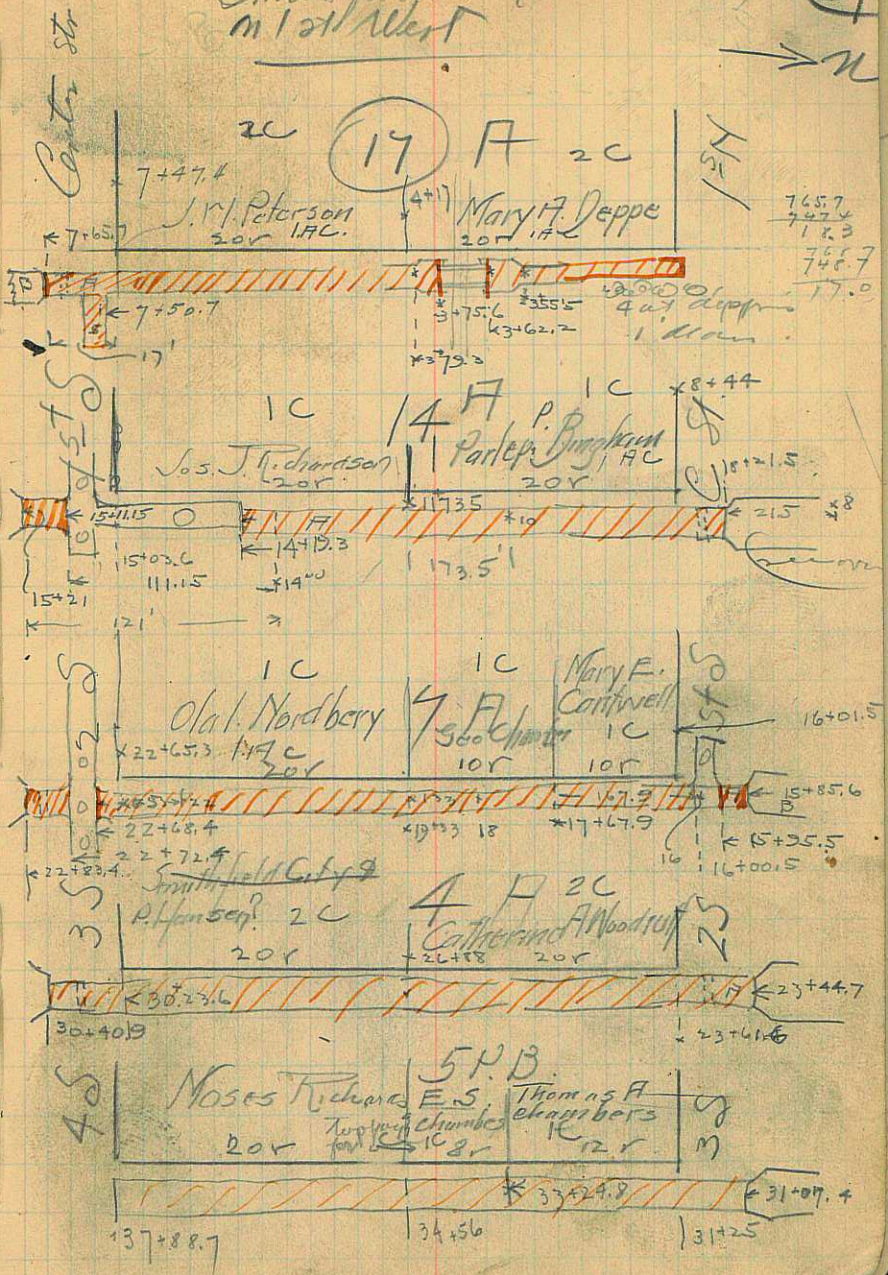 on 1st West
n
Center Str
1st N
2C
17
A
2C
7+47.4
J.M. Peterson
4+17
Mary A. Deppe
20r 1AC.
20r 1AC
765.7
747.4
18.3
765.7
748.7
17.0
7+65.7
A
7+50.7
17'
3+75.6
3+55.5
3+62.2
3+79.3
4 at depp
1st S
1C
14
A
1C
8+44
C St
Jos. J. Richardson
Parley P. Bingham
20r
20r
1AC
18+21.5
15+11.15
1173.5
10
21.5
14+19.3
15+03.6
111.15
14+00
173.5'
15+21
121'
2 S
1C
7
A
1C
Mary E.
Cantwell
1st S
Ola L. Nordbery
Geo Chamber
1C
16+01.5
22+65.3
20r
10r
10r
67.9
15+85.6
B
22+68.4
19+33
18
17+67.9
15+95.5
22+72.4
16
16+00.5
22+83.4
Smithfield City
3 S
P. Hansen?
2C
4
A
2C
2 S
Catherine A Woodruff
20r
26+88
20r
30+23.6
A
23+44.7
30+40.9
23+61.6
4 S
5 P. B.
3 S
Moses Richards
E. S.
chambers
Thomas A
chambers
20r
1C
8r
1C
12r
33+29.8
31+07.4
37+88.7
34+56
31+25